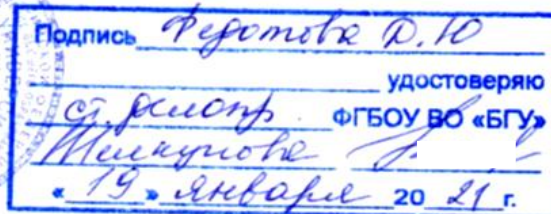 Подпись Федотова Д.Ю
удостоверяю
ст. делопр. ФГБОУ ВО «БГУ»
« 19 » января 20 21 г.